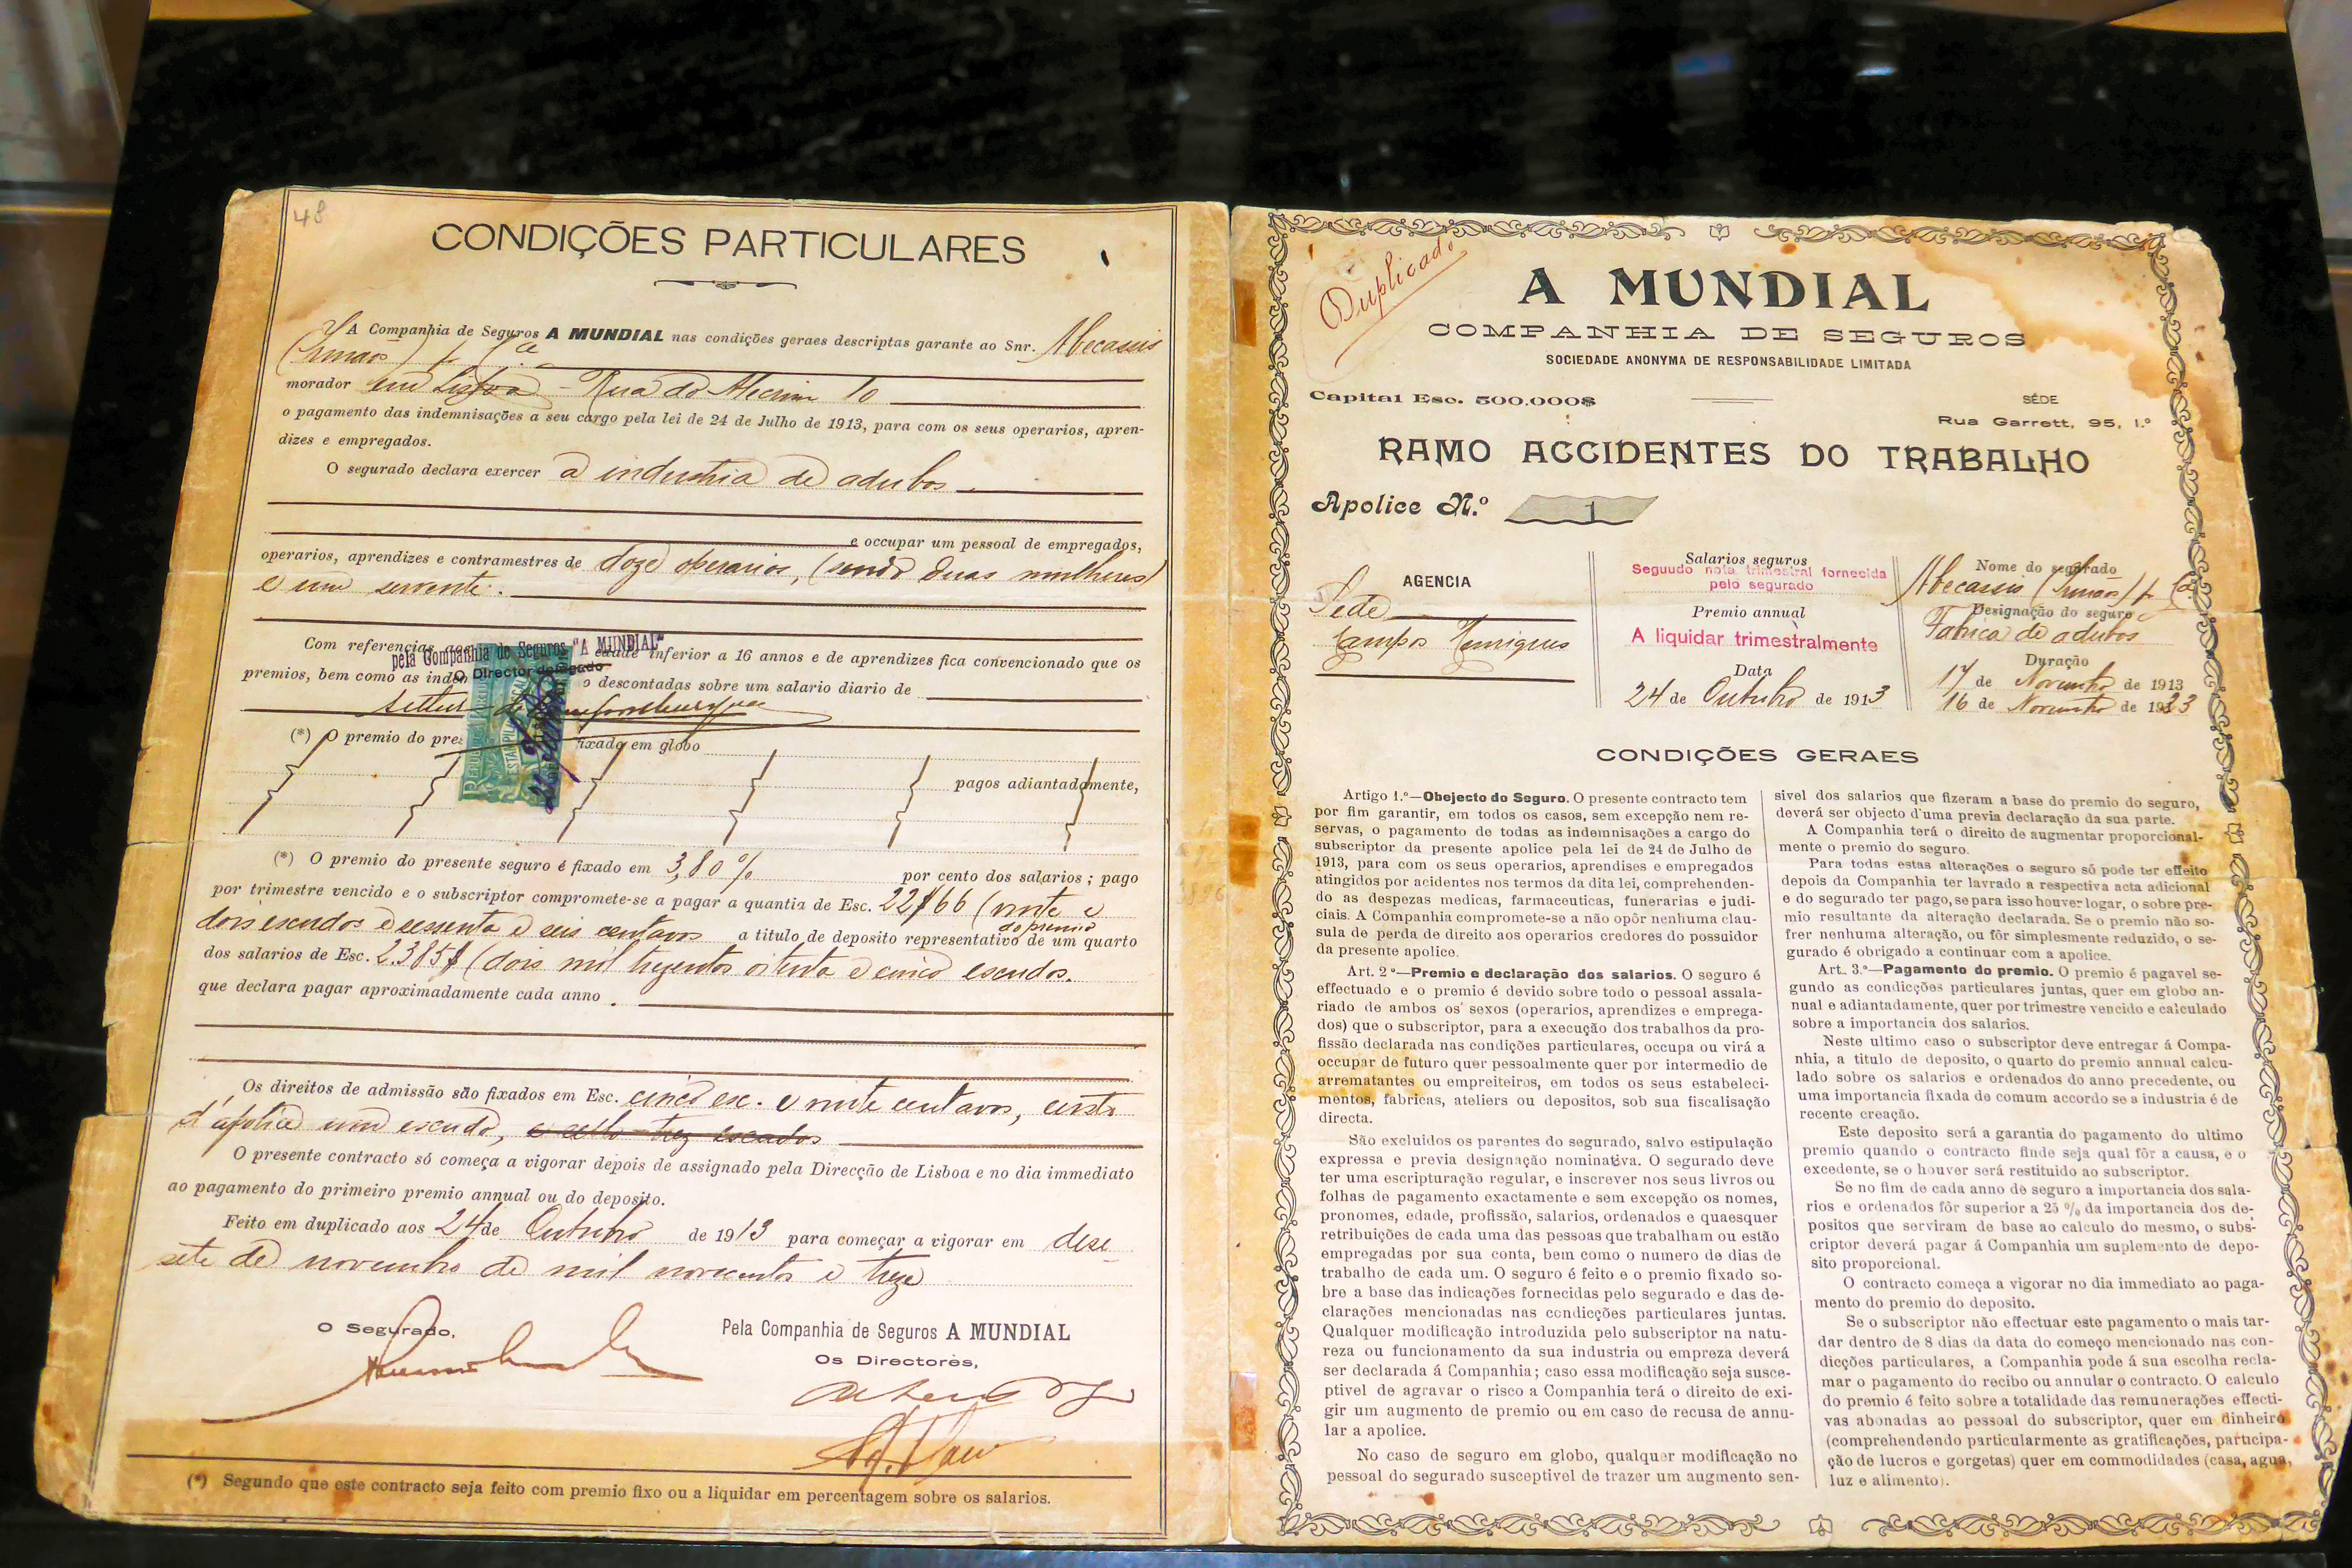 48
CONDIÇÕES PARTICULARES
A Companhia de Seguros A MUNDIAL nas condições geraes descriptas garante ao Snr. Abecassis
(Irmãos) & Ca
morador em Lisboa - Rua do Alecrim 10
o pagamento das indemnisações a seu cargo pela lei de 24 de Julho de 1913, para com os seus operarios, apren-
dizes e empregados.
O segurado declara exercer a industria de adubos
e occupar um pessoal de empregados,
operarios, aprendizes e contramestres de doze operarios, (sendo duas mulheres)
e um servente.
Com referencias edade inferior a 16 annos e de aprendizes fica convencionado que os
pela Companhia de Seguros "A MUNDIAL"
O Director delegado
premios, bem como as inden o descontadas sobre um salario diario de
(*) O premio do pre fixado em globo
pagos adiantadamente,
(*) O premio do presente seguro é fixado em 3,80 % por cento dos salarios ; pago
por trimestre vencido e o subscriptor compromete-se a pagar a quantia de Esc. 22$66 (vinte e
dois escudos e sessenta e seis centavos a titulo de deposito representativo do premio de um quarto
dos salarios de Esc. 2.385$ (dois mil trezentos oitenta e cinco escudos.
que declara pagar aproximadamente cada anno .
Os direitos de admissão são fixados em Esc. cinco esc. e vinte centavos, custo
d'apolice um escudo, e sello trez escudos
O presente contracto só começa a vigorar depois de assignado pela Direcção de Lisboa e no dia immediato
ao pagamento do primeiro premio annual ou do deposito.
Feito em duplicado aos 24 de Outubro de 1913 para começar a vigorar em deze
sete de novembro de mil novecentos e treze
O Segurado,
Pela Companhia de Seguros A MUNDIAL
Os Directores,
(*) Segundo que este contracto seja feito com premio fixo ou a liquidar em percentagem sobre os salarios.
Duplicado
A MUNDIAL
COMPANHIA DE SEGUROS
SOCIEDADE ANONYMA DE RESPONSABILIDADE LIMITADA
Capital Esc. 500.000$
SÉDE
Rua Garrett, 95, 1.º
RAMO ACCIDENTES DO TRABALHO
Apolice N.º 1
AGENCIA
Séde
Campos Henriques
Salarios seguros
Segundo nota trimestral fornecida
pelo segurado
Premio annual
A liquidar trimestralmente
Data
24 de Outubro de 1913
Nome do segurado
Abecassis (Irmãos) & Ca
Designação do seguro
Fabrica de adubos
Duração
17 de Novembro de 1913
16 de Novembro de 1923
CONDIÇÕES GERAES
Artigo 1.º—Obejecto do Seguro. O presente contracto tem
por fim garantir, em todos os casos, sem excepção nem re-
servas, o pagamento de todas as indemnisações a cargo do
subscriptor da presente apolice pela lei de 24 de Julho de
1913, para com os seus operarios, aprendises e empregados
atingidos por acidentes nos termos da dita lei, comprehenden-
do as despezas medicas, farmaceuticas, funerarias e judi-
ciais. A Companhia compromete-se a não opôr nenhuma clau-
sula de perda de direito aos operarios credores do possuidor
da presente apolice.
Art. 2º—Premio e declaração dos salarios. O seguro é
effectuado e o premio é devido sobre todo o pessoal assala-
riado de ambos os sexos (operarios, aprendizes e emprega-
dos) que o subscriptor, para a execução dos trabalhos da pro-
fissão declarada nas condições particulares, occupa ou virá a
occupar de futuro quer pessoalmente quer por intermedio de
arrematantes ou empreiteiros, em todos os seus estabeleci-
mentos, fabricas, ateliers ou depositos, sob sua fiscalisação
directa.
São excluidos os parentes do segurado, salvo estipulação
expressa e previa designação nominativa. O segurado deve
ter uma escripturação regular, e inscrever nos seus livros ou
folhas de pagamento exactamente e sem excepção os nomes,
pronomes, edade, profissão, salarios, ordenados e quaesquer
retribuições de cada uma das pessoas que trabalham ou estão
empregadas por sua conta, bem como o numero de dias de
trabalho de cada um. O seguro é feito e o premio fixado so-
bre a base das indicações fornecidas pelo segurado e das de-
clarações mencionadas nas condicções particulares juntas.
Qualquer modificação introduzida pelo subscriptor na natu-
reza ou funcionamento da sua industria ou empreza deverá
ser declarada á Companhia ; caso essa modificação seja susce-
ptivel de agravar o risco a Companhia terá o direito de exi-
gir um augmento de premio ou em caso de recusa de annu-
lar a apolice.
No caso de seguro em globo, qualquer modificação no
pessoal do segurado susceptivel de trazer um augmento sen-
sivel dos salarios que fizeram a base do premio do seguro,
deverá ser objecto d'uma previa declaração da sua parte.
A Companhia terá o direito de augmentar proporcional-
mente o premio do seguro.
Para todas estas alterações o seguro só pode ter effeito
depois da Companhia ter lavrado a respectiva acta adicional
e do segurado ter pago, se para isso houver logar, o sobre pre-
mio resultante da alteração declarada. Se o premio não so-
frer nenhuma alteração, ou fôr simplesmente reduzido, o se-
gurado é obrigado a continuar com a apolice.
Art. 3.º—Pagamento do premio. O premio é pagavel se-
gundo as condicções particulares juntas, quer em globo an-
nual e adiantadamente, quer por trimestre vencido e calculado
sobre a importancia dos salarios.
Neste ultimo caso o subscriptor deve entregar á Compa-
nhia, a titulo de deposito, o quarto do premio annual calcu-
lado sobre os salarios e ordenados do anno precedente, ou
uma importancia fixada de comum accordo se a industria é de
recente creação.
Este deposito será a garantia do pagamento do ultimo
premio quando o contracto finde seja qual fôr a causa, e o
excedente, se o houver será restituido ao subscriptor.
Se no fim de cada anno de seguro a importancia dos sala-
rios e ordenados fôr superior a 25 % da importancia dos de-
positos que serviram de base ao calculo do mesmo, o subs-
criptor deverá pagar á Companhia um suplemento de depo-
sito proporcional.
O contracto começa a vigorar no dia immediato ao paga-
mento do premio do deposito.
Se o subscriptor não effectuar este pagamento o mais tar-
dar dentro de 8 dias da data do começo mencionado nas con-
dicções particulares, a Companhia pode á sua escolha recla-
mar o pagamento do recibo ou annular o contracto. O calculo
do premio é feito sobre a totalidade das remunerações effecti-
vas abonadas ao pessoal do subscriptor, quer em dinheiro
(comprehendendo particularmente as gratificações, participa-
ção de lucros e gorgetas) quer em commodidades (casa, agua,
luz e alimento).